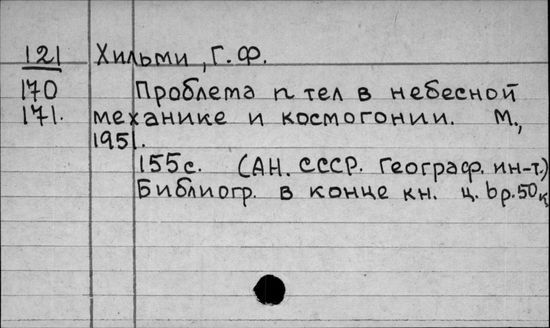 121 Хильми, Г.Ф.
170 Проблема n тел в небесной
171. механике и космогонии. М.,
1951.
155с. (АН. СССР. Географ. ин-т.)
Библиогр. в конце кн. ц. 6р.50к